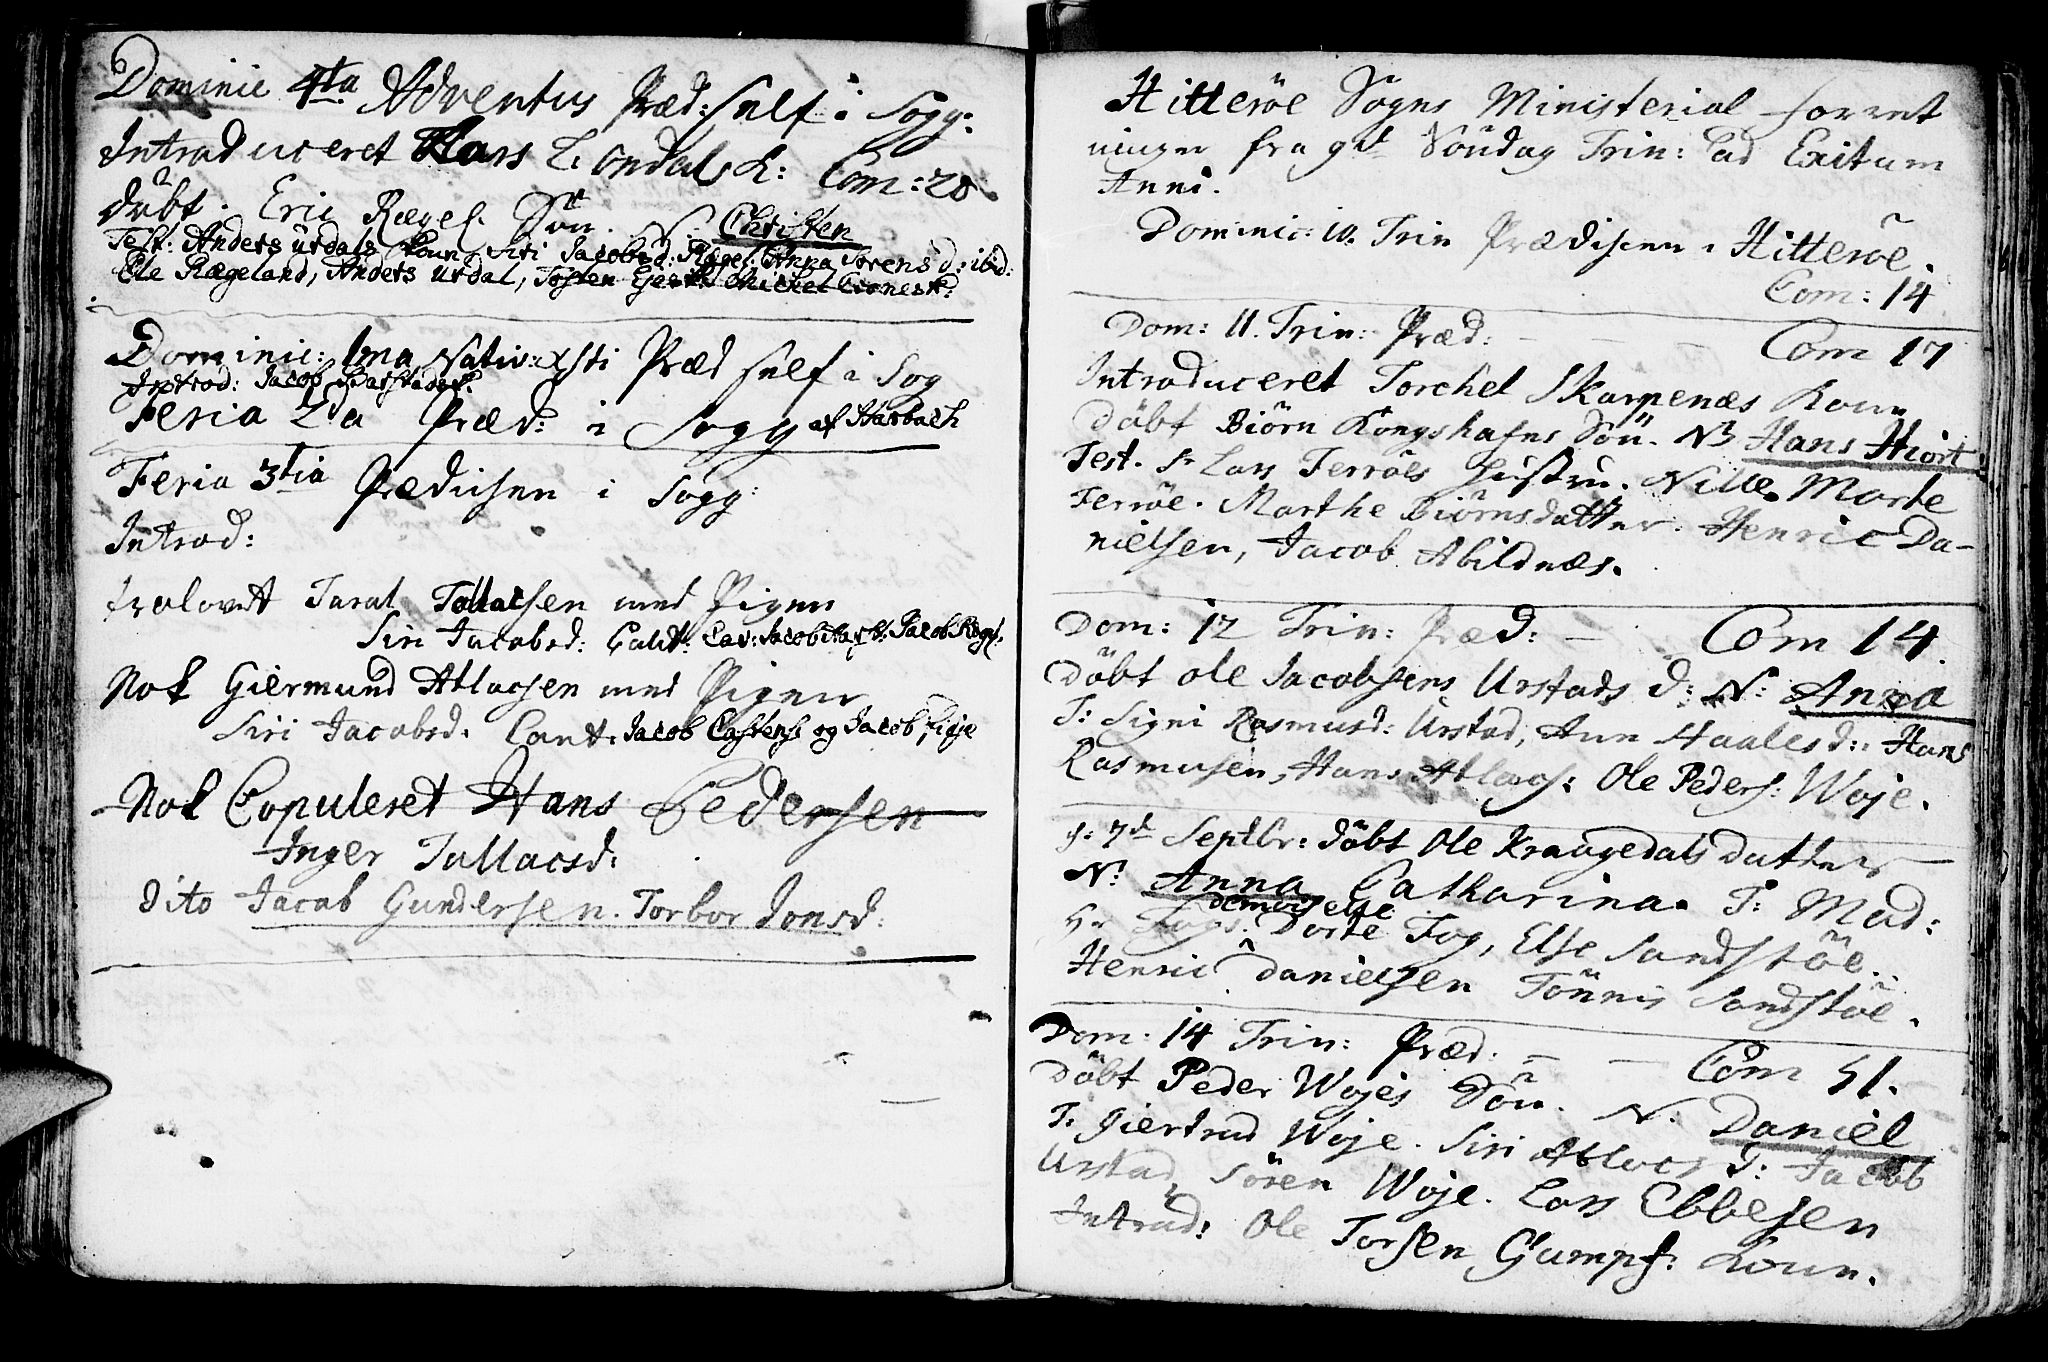 Dominic 4ta Adventus Præd: self i Sogg:
Introduceret Lars L: ondals K: Com: 28
døbt. Eric Rægel. Søn. N. Christen
Test: Anders Urdals Koun, Siri Jacobsd: Rægel. Anna Sørensd: ibid:
Ele Rægeland, Anders Urdal, Tosten
Dominic: 1ma Nativ: Xsti Præd self i Sog
Introd: Jacob
Feria 2da Præd: i Sogg af Harbach
Feria 3tia Prædicken i Sogg:
Introd:
trolovet Taral Tollacsen med Pigen
Siri Jacobsd: Caut:
Nok Giermund Atlacsen med Pigen
Siri Jacobsd. Caut. Jacob Castens. og Jacob Eitje
Nok Copuleret Hans Pedersen
Inger Tallacsd:
dito Jacob Gundersen. Torbor Jonsd:
Hitterøe Sogns Ministerial forret
ninger fra 9de Søndag Trin: ad Exitum
Anni.
Dominic: 10. Trin Prædicken i Hitterøe.
Com: 14
Dom: 11. Trin: Præd: - - - Com 17
Introduceret Torchel Skarpenæs Koun
døbt Biørn Kongshafns Søn. N. Hans Hiort
Test. Sr Lars Terrøes Hustru. Nille Marte
Terrøe. Marthe Biørnsdatter. Henric Da-
nielsen, Jacob Abildnæs.
Dom: 12 Trin: Præd: - Com 14.
Døbt Ole Jacobsens Urstads d: N: Anna
T: Signi Rasmusd: Urstad, Ann Haalesd: Hans
Rasmusen, Hans Atlacs: Ole Peders: Woje.
d: 7de Septbr: døbt Ole Kraugedals datter
N: Anna Catharina. T: Mad:
Hr Fogs. demoiselle Dorte Fog, Else Sandstøe.
Henric Danielsen Tønnis Sandstøe.
Dom: 14 Trin: Præd. - - Com 51.
døbt Peder Wojes Søn. N. Daniel
T: Giertrud Woje. Siri Atlacs d: Jacob
Urstad, Søren Woje. Lars Ebbesen
Introd: Ole Torsen Gumps: Koun.